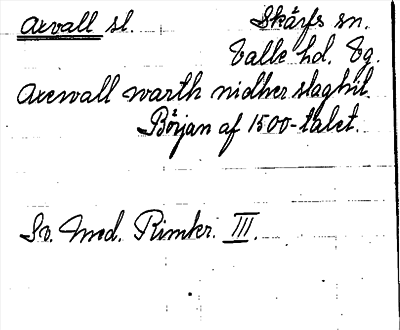 Axvall sl. Skärfs sn.
Valle hd. Vg.
Axewall warth nidher slaghit.
Början af 1500-talet.
Sv. Med. Rimkr. III.